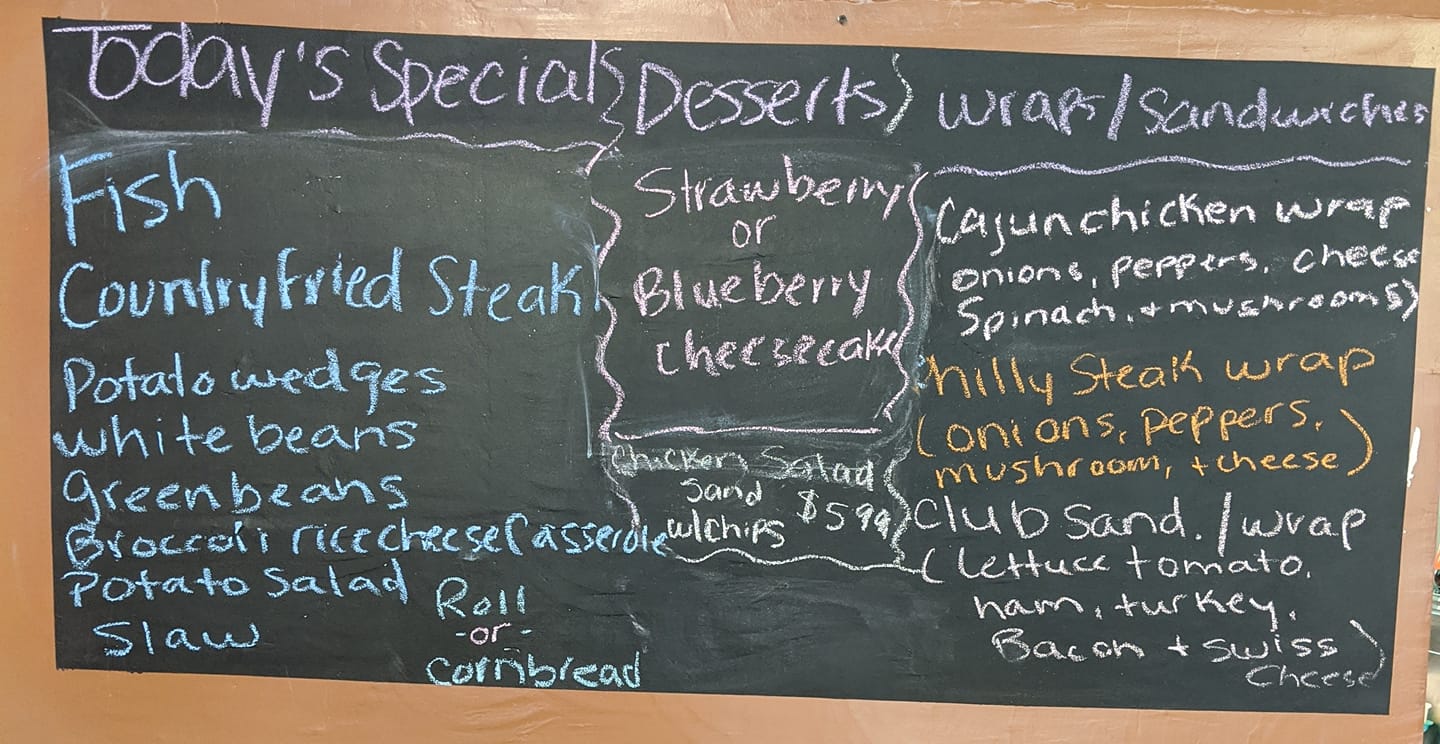 Today's Specials
Fish
Country Fried Steak
Potato wedges
white beans
green beans
Broccoli rice cheese Casserole
Potato Salad
Slaw
Roll
-or-
cornbread
Desserts
Strawberry
or
Blueberry
cheesecake
Chicken Salad
Sand
w/chips $5.99
Wraps/Sandwiches
Cajun chicken wrap
onions, peppers, cheese
Spinach, + mushrooms)
Philly Steak wrap
(onions, peppers,
mushroom, + cheese)
Club Sand. / wrap
(lettuce tomato,
ham, turkey,
Bacon + swiss
Cheese)